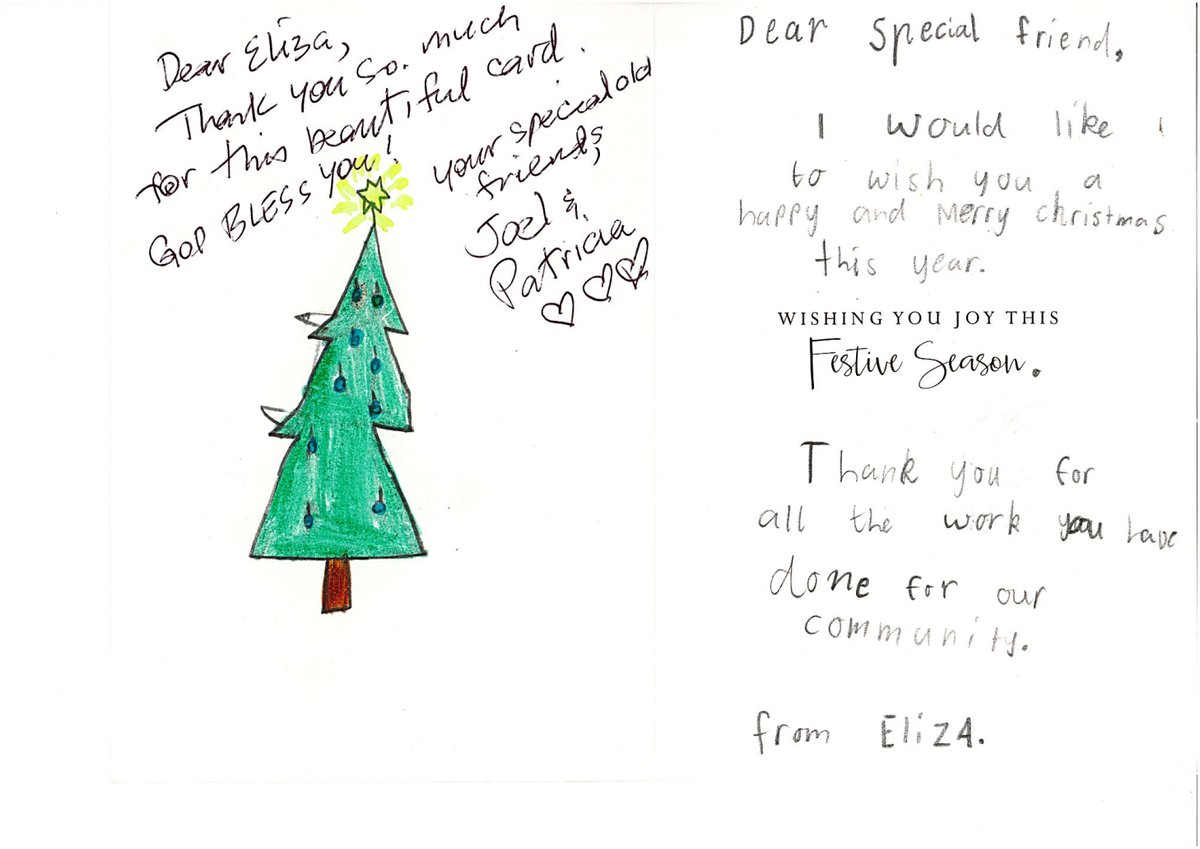 Dear Eliza,
Thank you so much
for this beautiful card.
GOD BLESS you!
your special old
friends,
Joel &
Patricia
Dear special friend,
I would like
to wish you a
happy and Merry christmas
this year.
WISHING YOU JOY THIS
Festive Season.
Thank you for
all the work you have
done for our
community.
from Eliza.